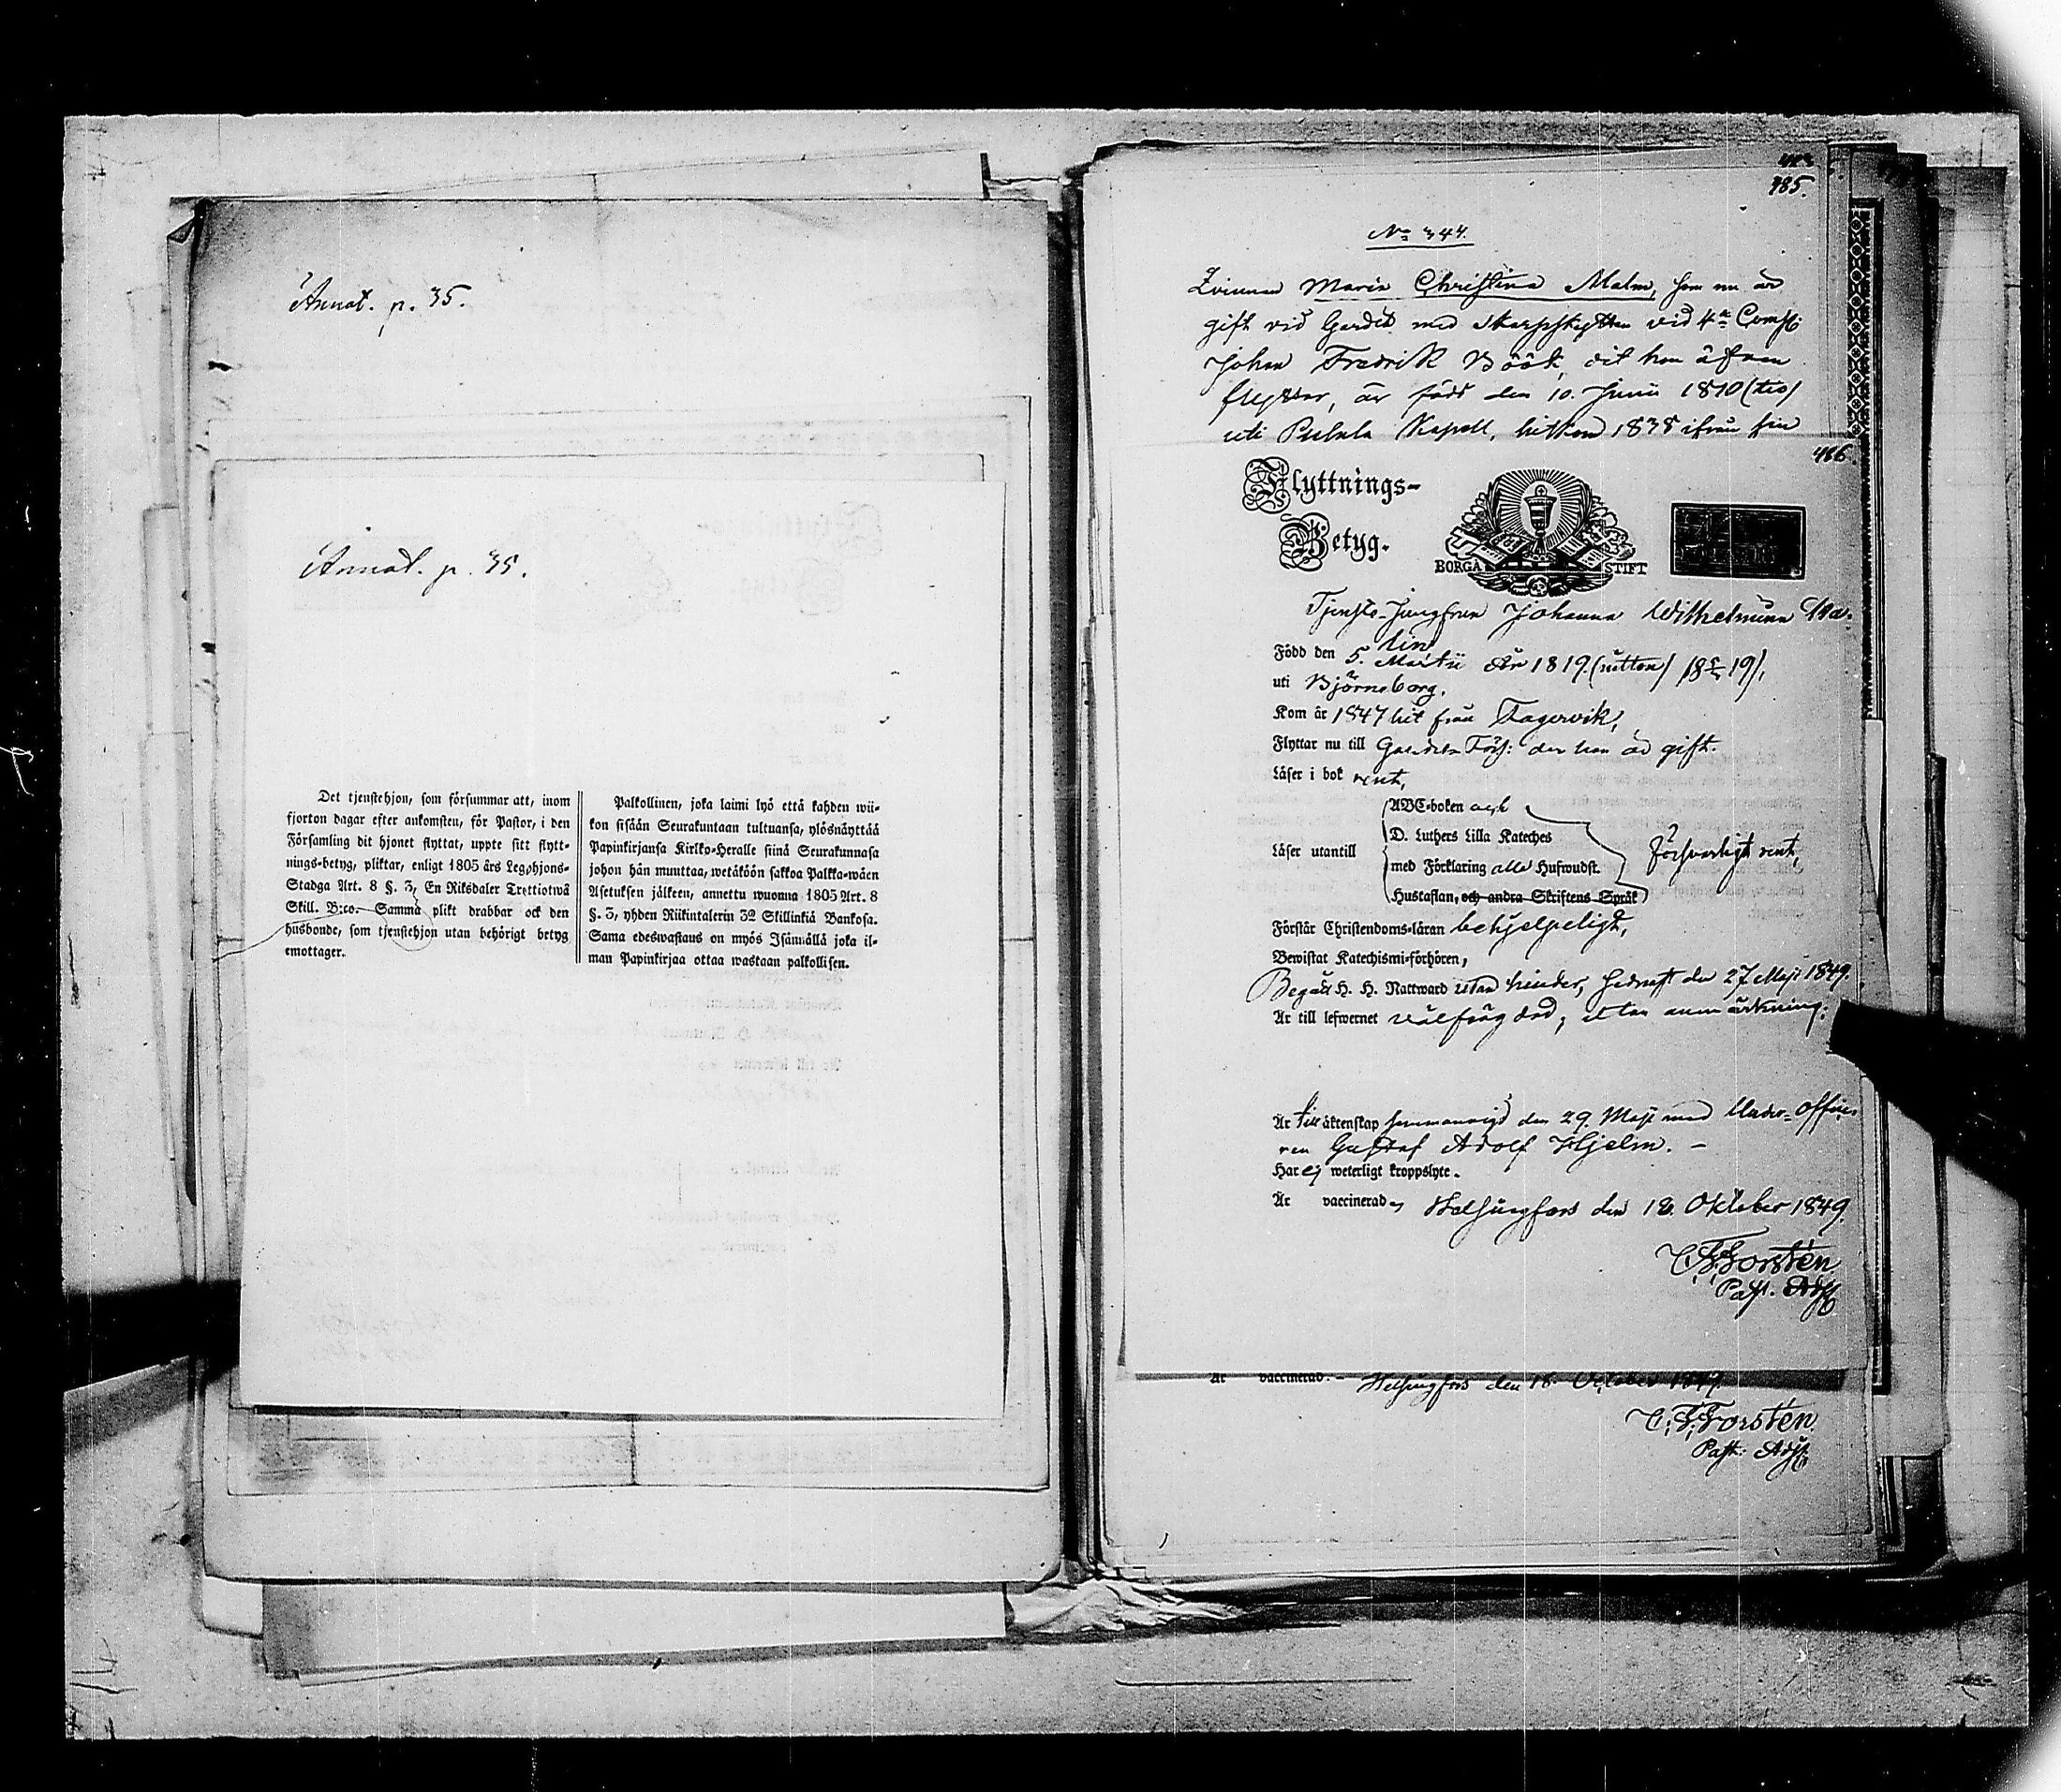 Annot. p. 35.
Annot. p. 35.
Det tjenstehjon, som försummar att, inom
fjorton dagar efter ankomsten, för Pastor, i den
Församling dit hjonet flyttat, uppte sitt flytt-
nings-betyg, pliktar, enligt 1805 års Legohjons-
Stadga Art. 8 §. 3, En Riksdaler Trettiotwå
Skill. B:co. Samma plikt drabbar ock den
husbonde, som tjenstehjon utan behörigt betyg
emottager.
Palkollinen, joka laimi lyö että kahden wii-
kon sisään Seurakuntaan tultuansa, ylösnäyttää
Papinkirjansa Kirkko-Heralle siinä Seurakunnasa
johon hän muuttaa, wetäköön sakkoa Palkka-wäen
Asetuksen jälkeen, annettu wuonna 1805 Art. 8
§. 3, yhden Riikintalerin 32 Skillinkiä Bankosa.
Sama edeswastaus on myös Isännällä joka il-
man Papinkirjaa ottaa wastaan palkollisen.
485.
No 344.
Qvinnan Maria Christina Malm, som nu är
gift vid Gardet med Skarpskytten vid 4de Comp:
Johan Fredrik Böök, dit hon äfven
flyttar, är född den 10. Junii 1810 (tio)
uti Pusula Kapell, hitkom 1838 ifrån sin
486.
Flyttnings-
Betyg.
BORGÅ STIFT
Tjenste-Jungfrun Johanna Wilhelmina Ma-
lin
Född den 5. Martii år 1819. (nitton) 18 19),
uti Björneborg.
Kom år 1847 hit från Fagervik,
Flyttar nu till Gardets Förs: der hon är gift.
Läser i bok rent,
Läser utantill
ABC-boken och
D. Luthers Lilla Kateches
med Förklaring alla Hufwudst.
Hustaflan, och andra Skriftens Språk
försvarligt rent,
Förstår Christendoms-läran behjelpeligt,
Bewistat Katechismi-förhören,
Begått H. H. Nattward utan hinder, sednast den 27 Maji 1849.
Är till lefwernet välfrägdad, utan anmärkning.
Är till äktenskap sammanvigd den 29. Maji med Under-Office-
ren Gustaf Adolf Hjelm. –
Har ej weterligt kroppslyte.
Är vaccinerad, Helsingfors den 18. Oktober 1849.
C. F. Forsten
Past. Adj.
Är vaccinerad. – Helsingfors den 18. October 1849.
C. F. Forsten.
Past: Adj.